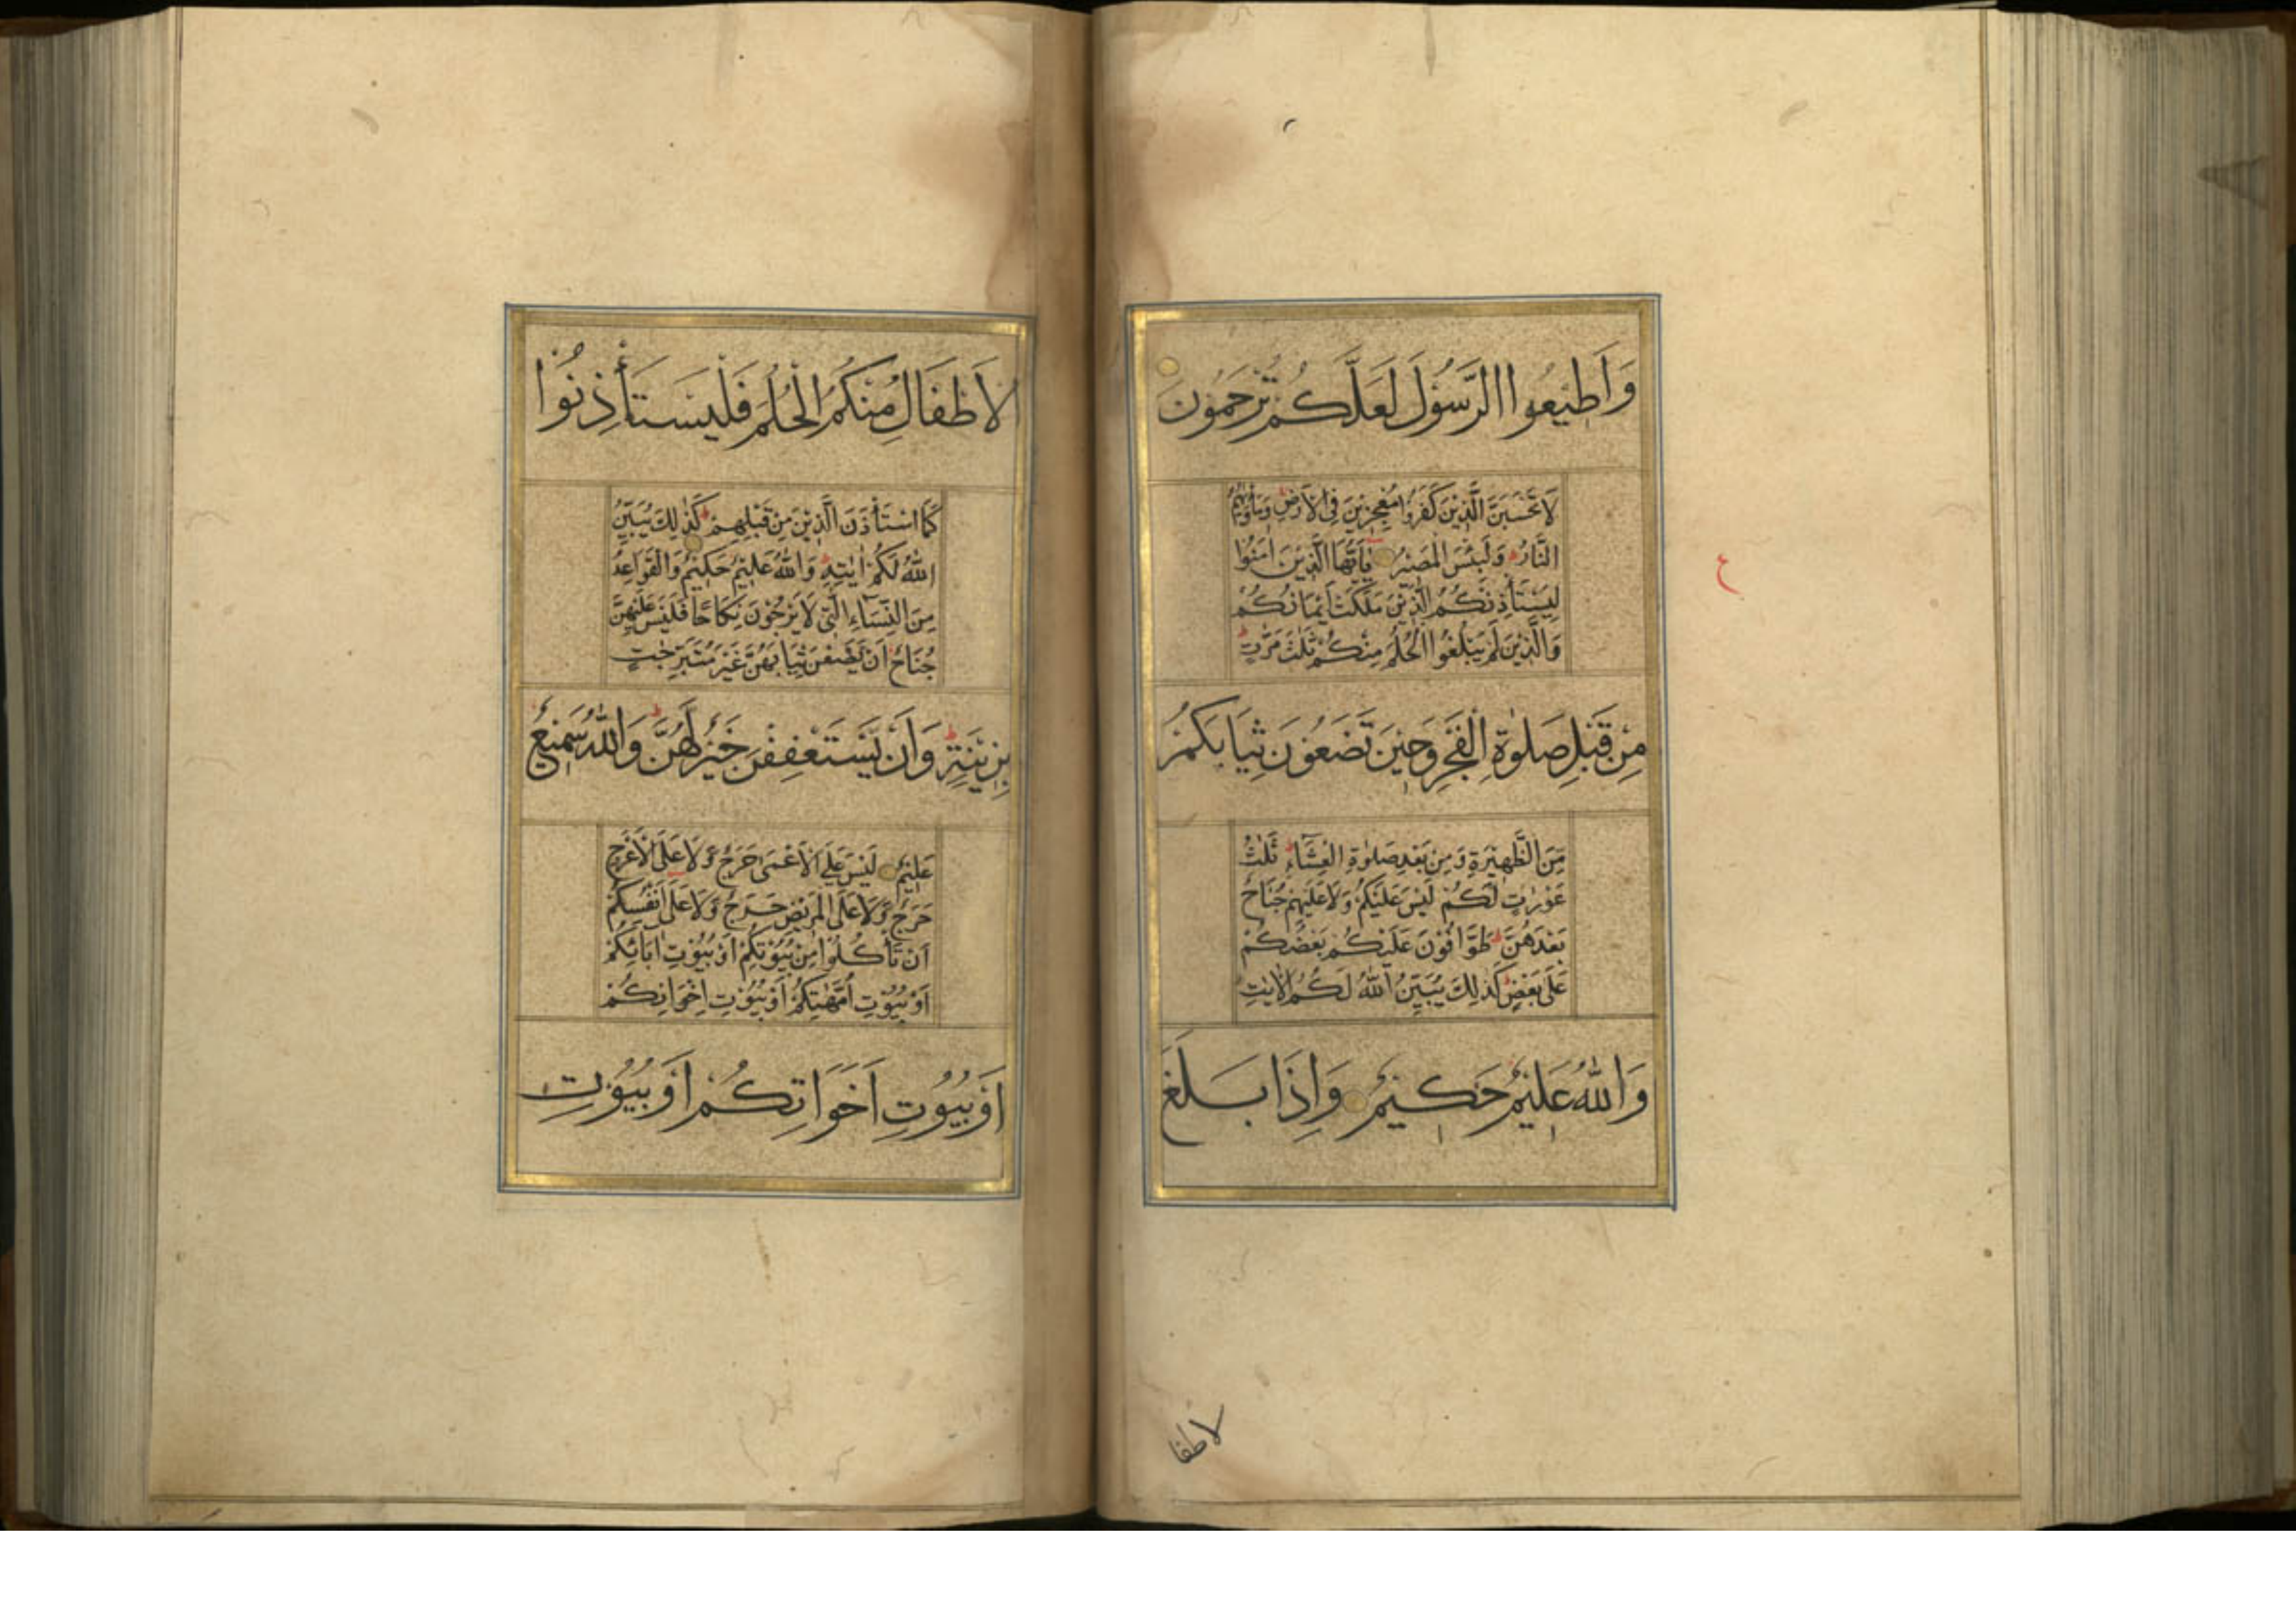 وَاَطِيْعُوا الرَّسُوْلَ لَعَلَّكُمْ تُرْحَمُوْنَ
لَا تَحْسَبَنَّ الَّذِيْنَ كَفَرُوْا مُعْجِزِيْنَ فِى الْاَرْضِ وَمَاْوٰىهُمُ
النَّارُ وَلَبِئْسَ الْمَصِيْرُ يٰاَيُّهَا الَّذِيْنَ اٰمَنُوْا
لِيَسْتَاْذِنْكُمُ الَّذِيْنَ مَلَكَتْ اَيْمَانُكُمْ
وَالَّذِيْنَ لَمْ يَبْلُغُوا الْحُلُمَ مِنْكُمْ ثَلٰثَ مَرّٰتٍ
مِنْ قَبْلِ صَلٰوةِ الْفَجْرِ وَحِيْنَ تَضَعُوْنَ ثِيَابَكُمْ
مِّنَ الظَّهِيْرَةِ وَمِنْ بَعْدِ صَلٰوةِ الْعِشَآءِ ثَلٰثُ
عَوْرٰتٍ لَّكُمْ لَيْسَ عَلَيْكُمْ وَلَا عَلَيْهِمْ جُنَاحٌ
بَعْدَهُنَّ طَوَّافُوْنَ عَلَيْكُمْ بَعْضُكُمْ
عَلٰى بَعْضٍ كَذٰلِكَ يُبَيِّنُ اللّٰهُ لَكُمُ الْاٰيٰتِ
وَاللّٰهُ عَلِيْمٌ حَكِيْمٌ وَاِذَا بَلَغَ
ع
لاطفا
الْاَطْفَالُ مِنْكُمُ الْحُلُمَ فَلْيَسْتَاْذِنُوْا
كَمَا اسْتَاْذَنَ الَّذِيْنَ مِنْ قَبْلِهِمْ كَذٰلِكَ يُبَيِّنُ
اللّٰهُ لَكُمْ اٰيٰتِهٖ وَاللّٰهُ عَلِيْمٌ حَكِيْمٌ وَالْقَوَاعِدُ
مِنَ النِّسَآءِ الّٰتِى لَا يَرْجُوْنَ نِكَاحًا فَلَيْسَ عَلَيْهِنَّ
جُنَاحٌ اَنْ يَّضَعْنَ ثِيَابَهُنَّ غَيْرَ مُتَبَرِّجٰتٍ
بِزِيْنَةٍ وَاَنْ يَّسْتَعْفِفْنَ خَيْرٌ لَّهُنَّ وَاللّٰهُ سَمِيْعٌ
عَلِيْمٌ لَيْسَ عَلَى الْاَعْمٰى حَرَجٌ وَّلَا عَلَى الْاَعْرَجِ
حَرَجٌ وَّلَا عَلَى الْمَرِيْضِ حَرَجٌ وَّلَا عَلٰى اَنْفُسِكُمْ
اَنْ تَاْكُلُوْا مِنْ بُيُوْتِكُمْ اَوْ بُيُوْتِ اٰبَائِكُمْ
اَوْ بُيُوْتِ اُمَّهٰتِكُمْ اَوْ بُيُوْتِ اِخْوَانِكُمْ
اَوْ بُيُوْتِ اَخَوَاتِكُمْ اَوْ بُيُوْتِ